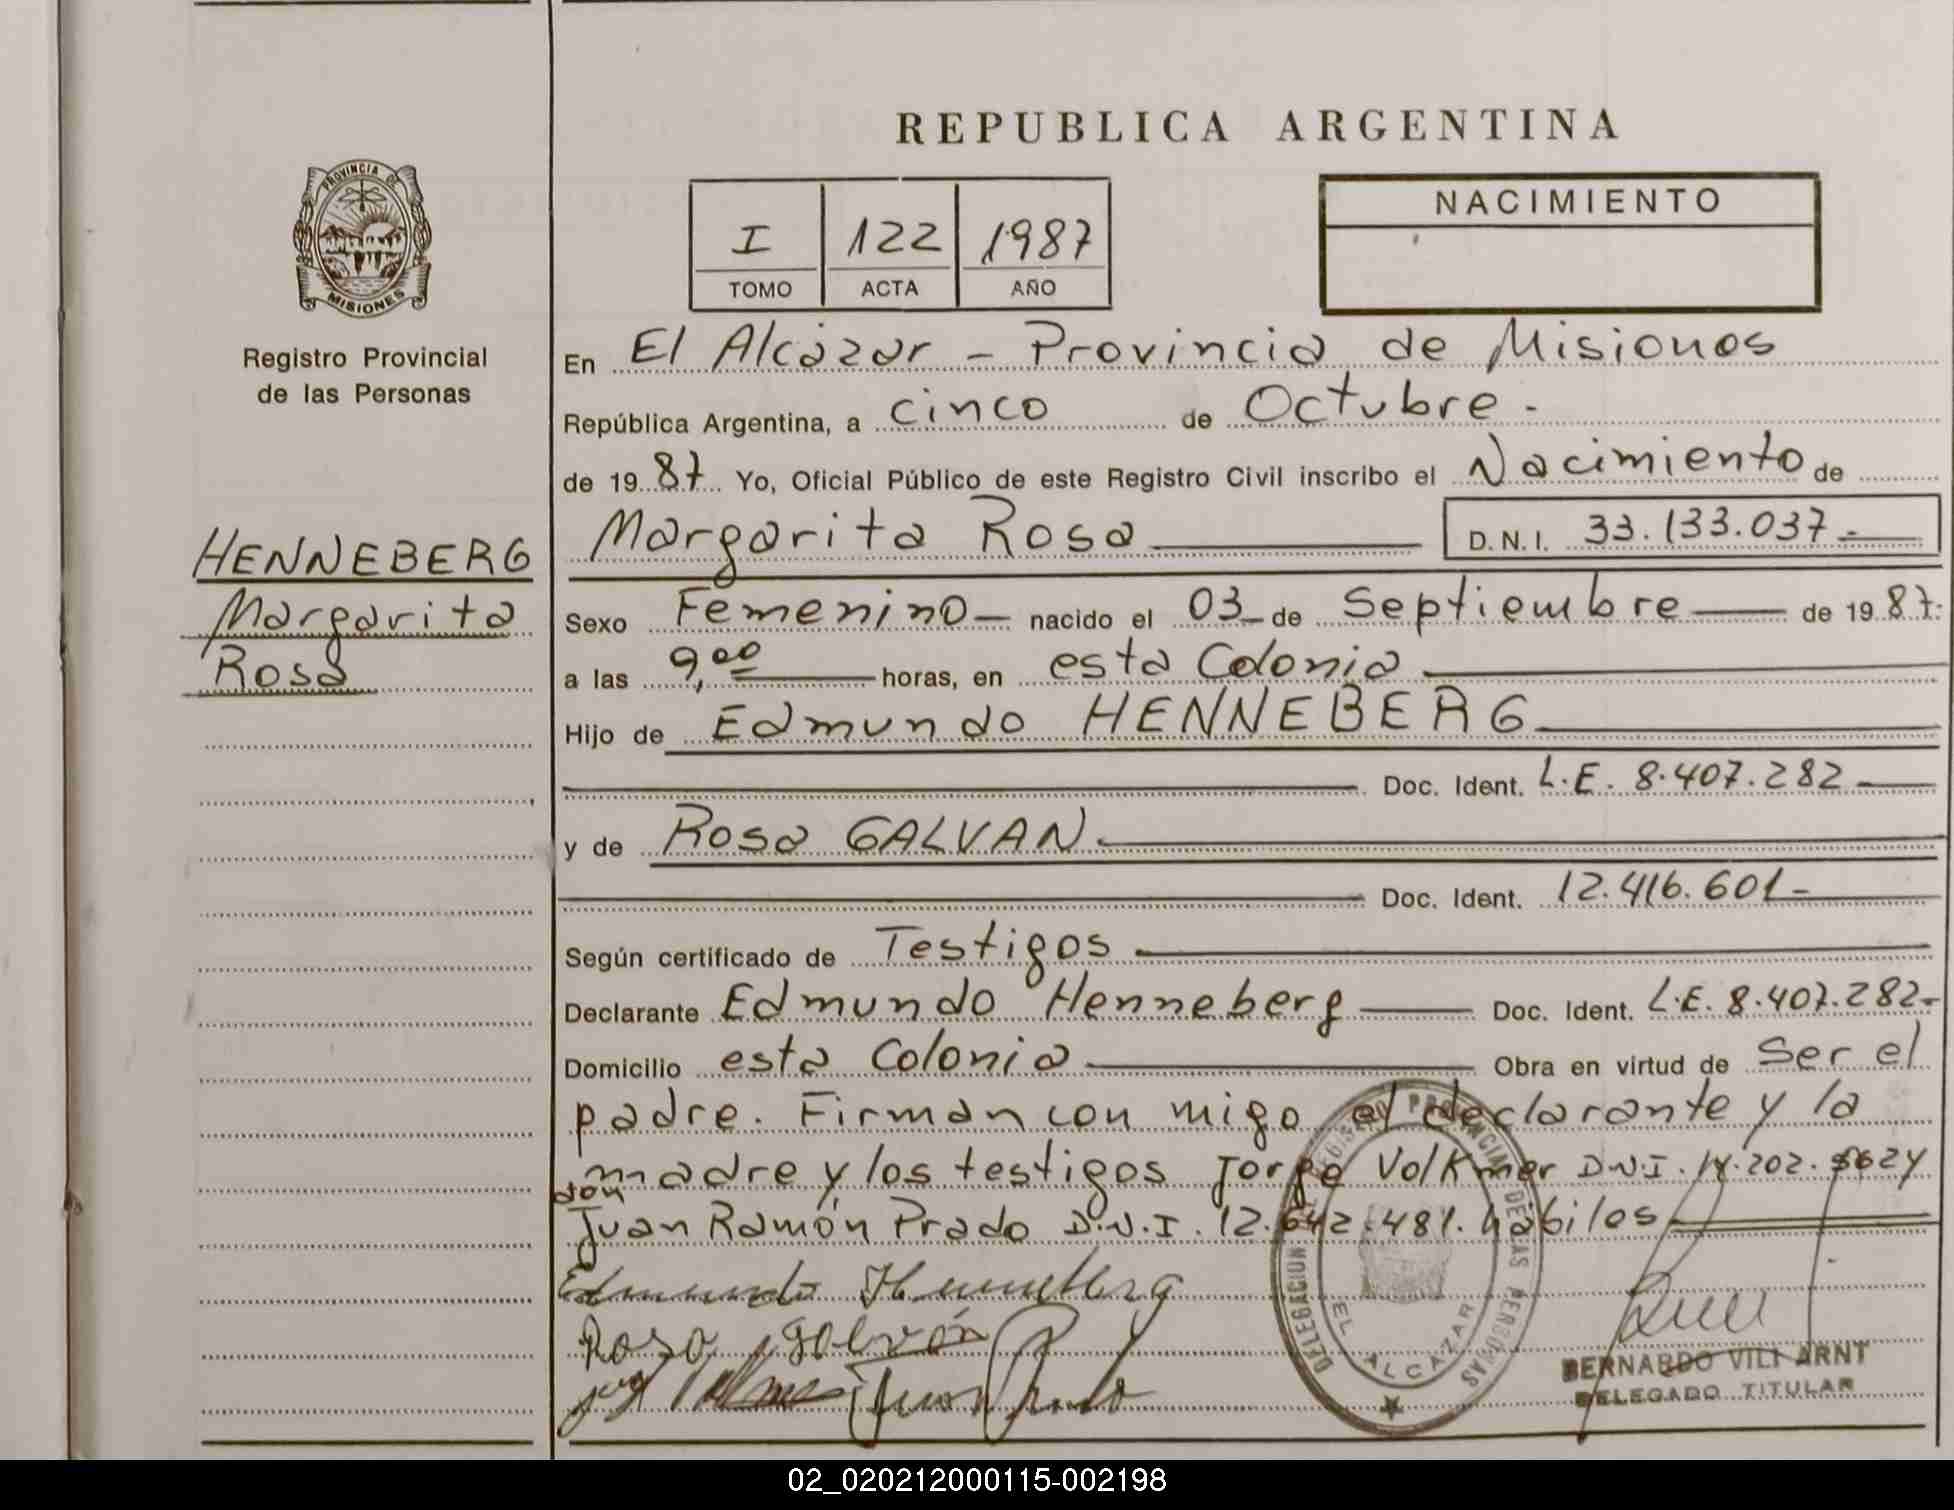 REPUBLICA ARGENTINA
PROVINCIA DE MISIONES
Registro Provincial
de las Personas
I 122 1987
TOMO ACTA AÑO
NACIMIENTO
HENNEBERG
Margarita
Rosa
En El Alcázar - Provincia de Misiones
República Argentina, a cinco de Octubre.-
de 1987 Yo, Oficial Público de este Registro Civil inscribo el Nacimiento de
Margarita Rosa D.N.I. 33.133.037.-
Sexo Femenino nacido el 03 de Septiembre de 1987.
a las 9,00 horas, en esta Colonia
Hijo de Edmundo HENNEBERG
Doc. Ident. L.E. 8.407.282
y de Rosa GALVAN
Doc. Ident. 12.416.601-
Según certificado de Testigos
Declarante Edmundo Henneberg Doc. Ident. L.E. 8.407.282-
Domicilio esta Colonia Obra en virtud de Ser el
padre. Firman con migo el declarante y la
madre y los testigos Jorge Volkmer D.N.I.
don
Juan Ramón Prado D.N.I. 12.642.481. hábiles
Edmundo Henneberg
Rosa galván
Juan Prado
DELEGACION REGISTRO PROVINCIAL DE LAS PERSONAS
EL ALCAZAR
BERNARDO VILI ARNT
DELEGADO TITULAR
02_020212000115-002198